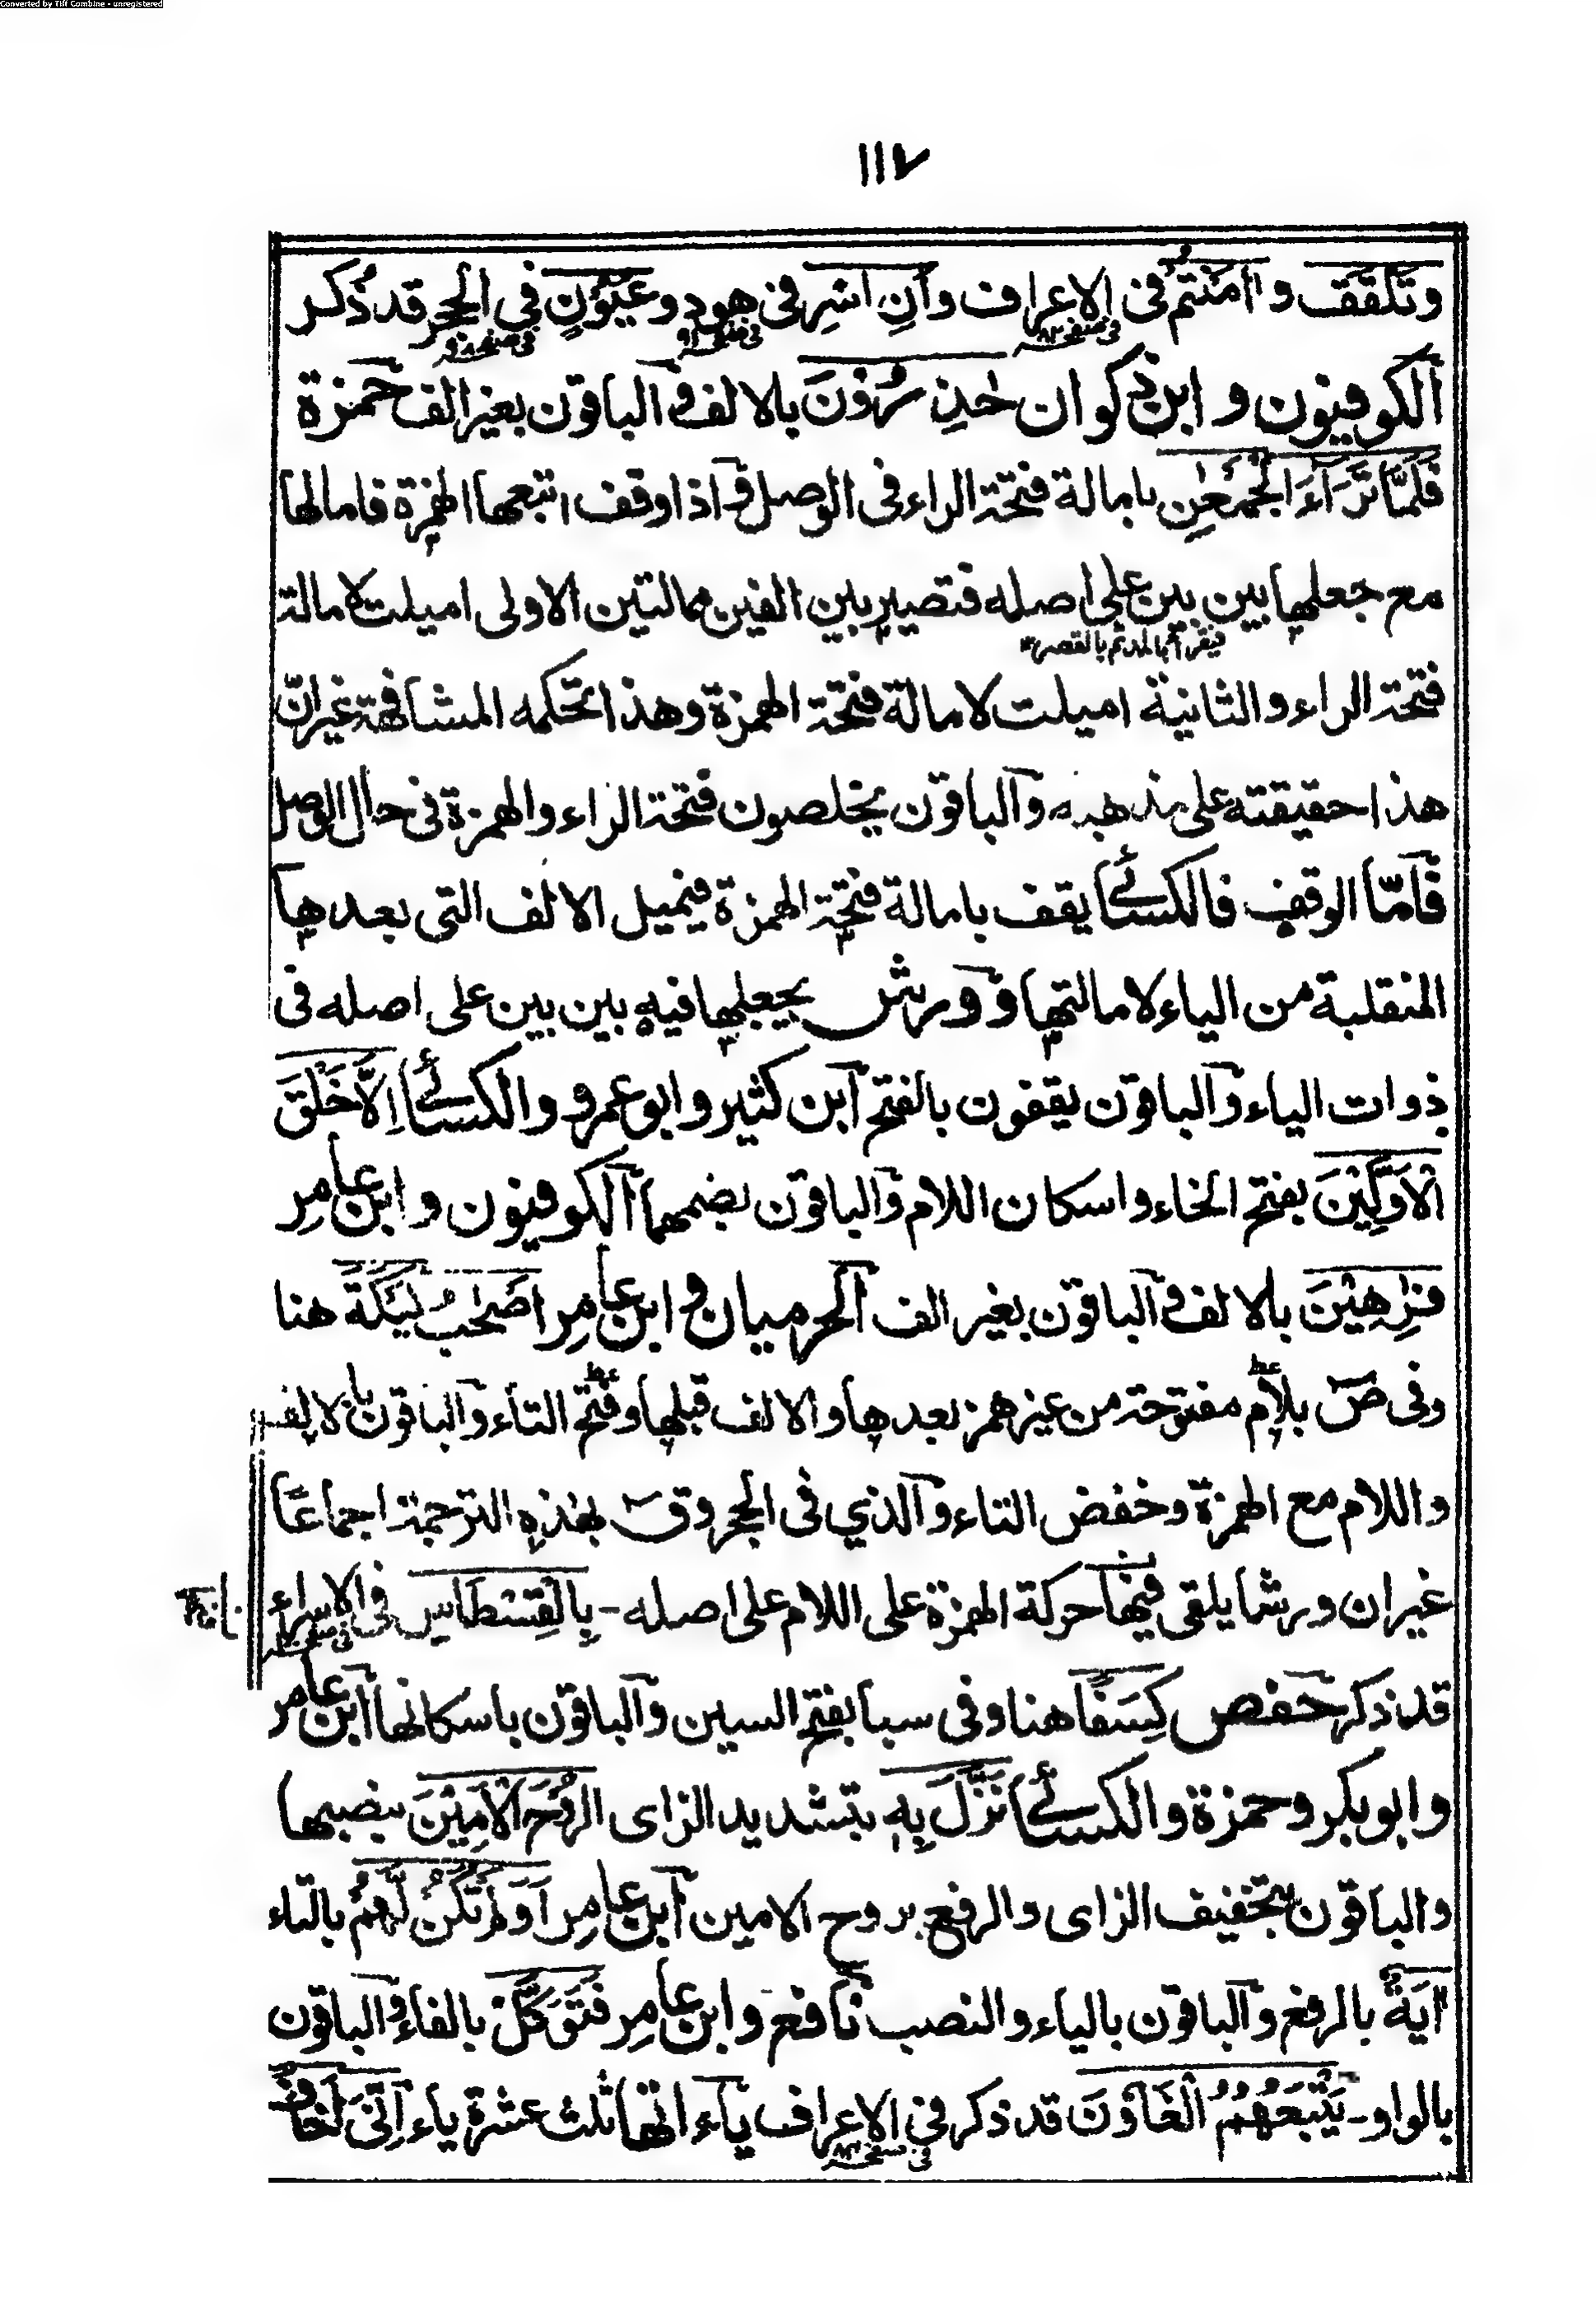 Converted by Tiff Combine - unregistered
١١٧
وتلقف وءامنتم فى الاعراف وأن اسر فى هود وعيون في الحجر قد ذكر
فى صفحه ٨٢
الكوفيون وابن ذكوان حٰذِرُوْنَ بالالف والباقون بغير الف حمزة
فَلَمَّا تَرَآءَ الْجَمْعٰنِ بامالة فتحة الراء فى الوصل واذا وقف اتبعها الهمزة فامالها
مع جعلها بين بين على اصله فتصير بين الفين ممالتين الاولى اميلت لامالة
فيقرأ بالمد ثم بالقصر
فتحة الراء والثانية اميلت لامالة فتحة الهمزة وهذا تحكمه المشافهة غير ان
هذا حقيقته على مذهبه والباقون يخلصون فتحة الراء والهمزة فى حال الوصل
فامّا الوقف فالكسائے يقف بامالة فتحة الهمزة فيميل الالف التى بعدها
المنقلبة من الياء لامالتها وورش يجعلها فيه بين بين على اصله فى
ذوات الياء والباقون يقفون بالفتح ابن كثير وابو عمرو والكسائے اِلَّا خَلْقَ
الْاَوَّلِيْنَ بفتح الخاء واسكان اللام والباقون بضمهما الكوفيون وابن عامر
فٰرِهِيْنَ بالالف والباقون بغير الف الحرميان وابن عامر اَصْحٰبُ لَيْكَةَ هنا
وفى صٓ بلام مفتوحة من غير همز بعدها والالف قبلها وفتح التاء والباقون بالالف
واللام مع الهمزة وخفض التاء والذي فى الحجر وقٓ بهذه الترجمة اجماعًا
غير ان ورشا يلقى فيها حركة الهمزة على اللام على اصله - بِالْقِسْطَاسِ فى الاسراء
قد ذكر حفص كِسَفًا هنا وفى سبا بفتح السين والباقون باسكانها ابن عامر
وابوبكر وحمزة والكسائے نَزَّلَ بِهِ بتشديد الزاى الرُّوْحَ الْاَمِيْنَ بنصبهما
والباقون بتخفيف الزاى والرفع بروح الامين ابن عامر اَوَلَمْ تَكُنْ لَّهُمْ بالتاء
اٰيَةٌ بالرفع والباقون بالياء والنصب نافع وابن عامر فَتَوَكَّلْ بالفاء والباقون
بالواو - يَتْبَعُهُمُ الْغَاوٗنَ قد ذكر في الاعراف ياء اتها ثلث عشرة ياء اِنِّىْ اَخَافُ
فى صفحه ٨٣